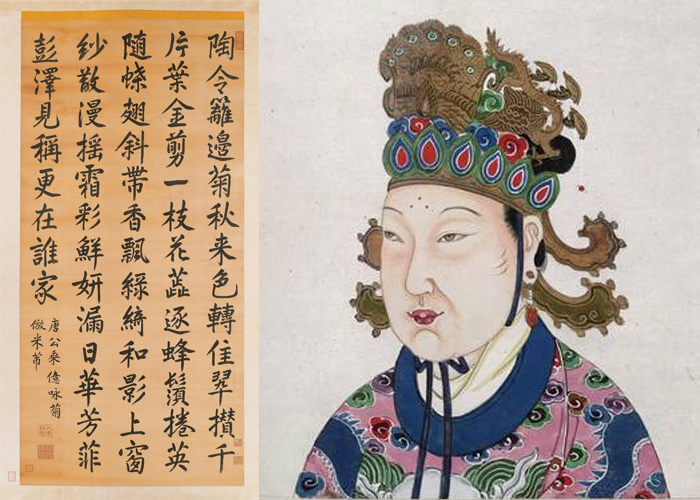 陶令籬邊菊秋来色轉佳翠攢千
片葉金剪一枝花蕋逐蜂鬚捲英
隨蝶翅斜帶香飄綠綺和影上窗
紗散漫揺霜彩鮮妍漏日華芳菲
彭澤見稱更在誰家
唐公乘億咏菊
倣米芾